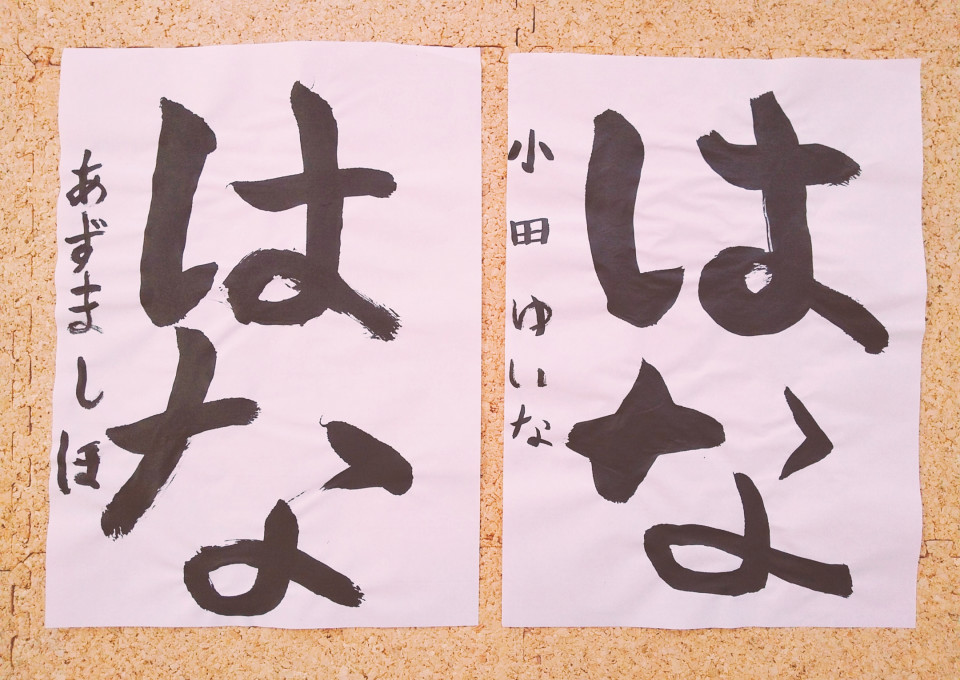 はな
小田 ゆいな
はな
あずま しほ